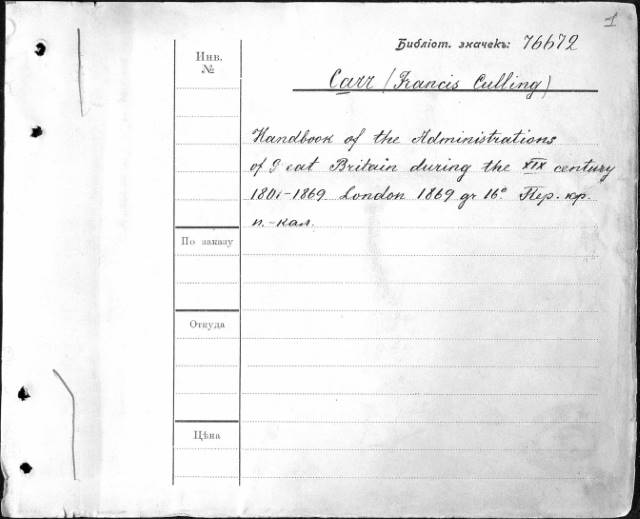 1
Библіот. значекъ: 76672
Инв. №
Carr (Francis Culling)
Handbook of the Administrations
of G eat Britain during the XIX century
1801-1869 London 1869 gr 16° Пер. кр.
п.-кал.
По заказу
Откуда
Цѣна